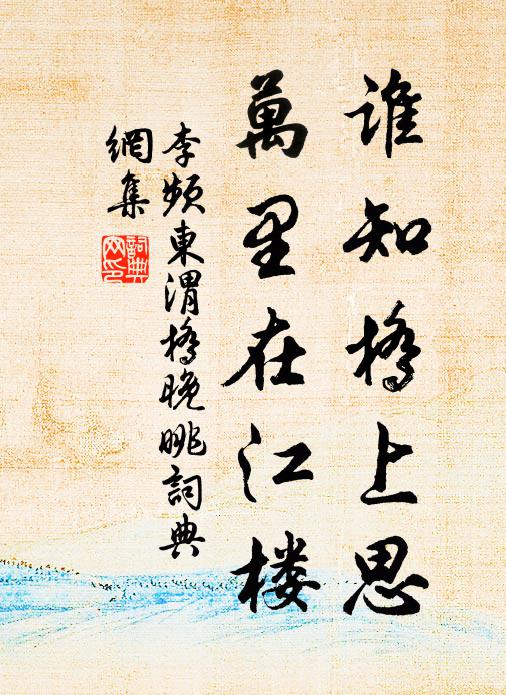 谁知橋上思
萬里在江楼
李频東渭橋晚眺詞典
網集
詞典
网印